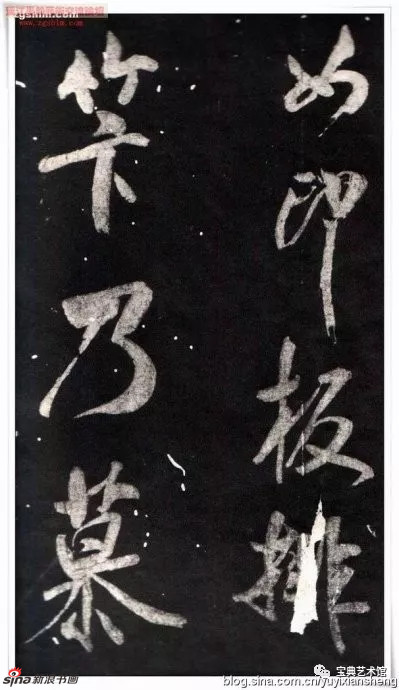 www.zgshlm.com
如印板排
笇乃慕
宝典艺术馆
sina新浪书画
blog.sina.com.cn/yuyixiansheng